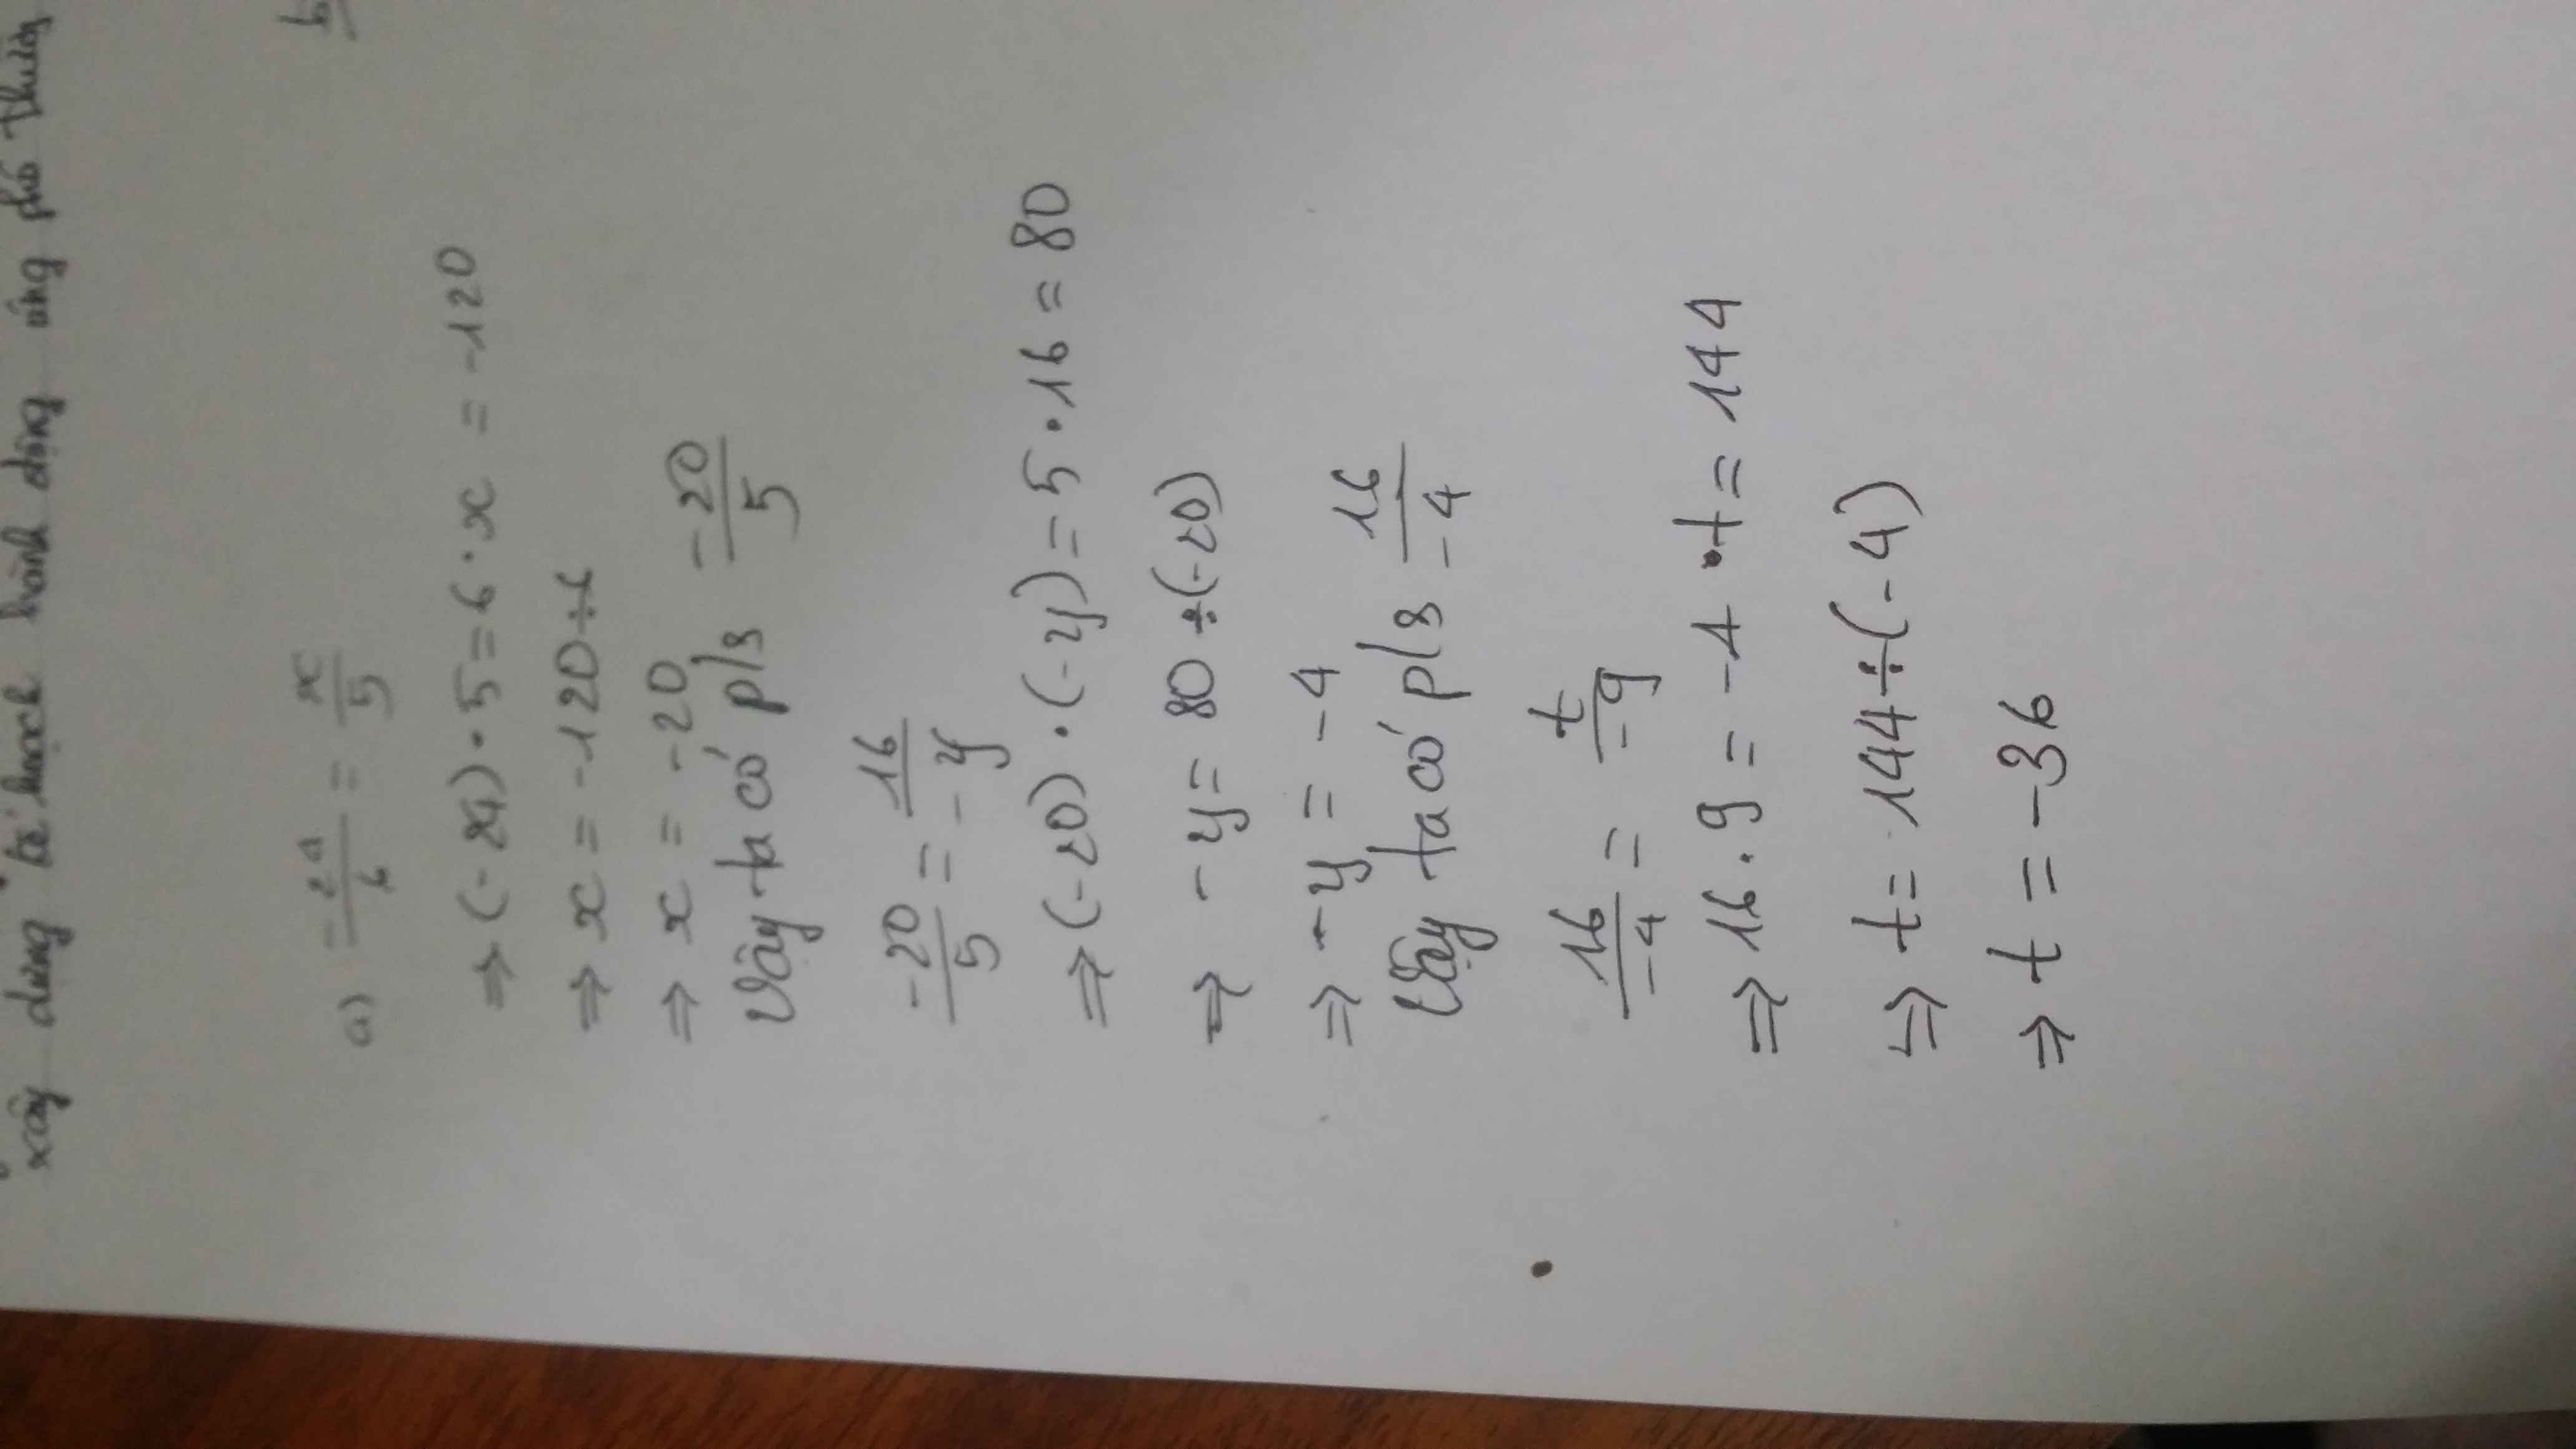 xây dựng kế hoạch hành động ứng phó
a) -24/6 = x/5
⇒ (-24) · 5 = 6 · x = -120
⇒ x = -120 ÷ 6
⇒ x = -20
Vậy ta có p/s -20/5
-20/5 = 16/-y
⇒ (-20) · (-y) = 5 · 16 = 80
⇒ -y = 80 ÷ (-20)
⇒ -y = -4
Vậy ta có p/s 16/-4
16/-4 = t/-9
⇒ 16 · 9 = -4 · t = 144
⇒ t = 144 ÷ (-4)
⇒ t = -36